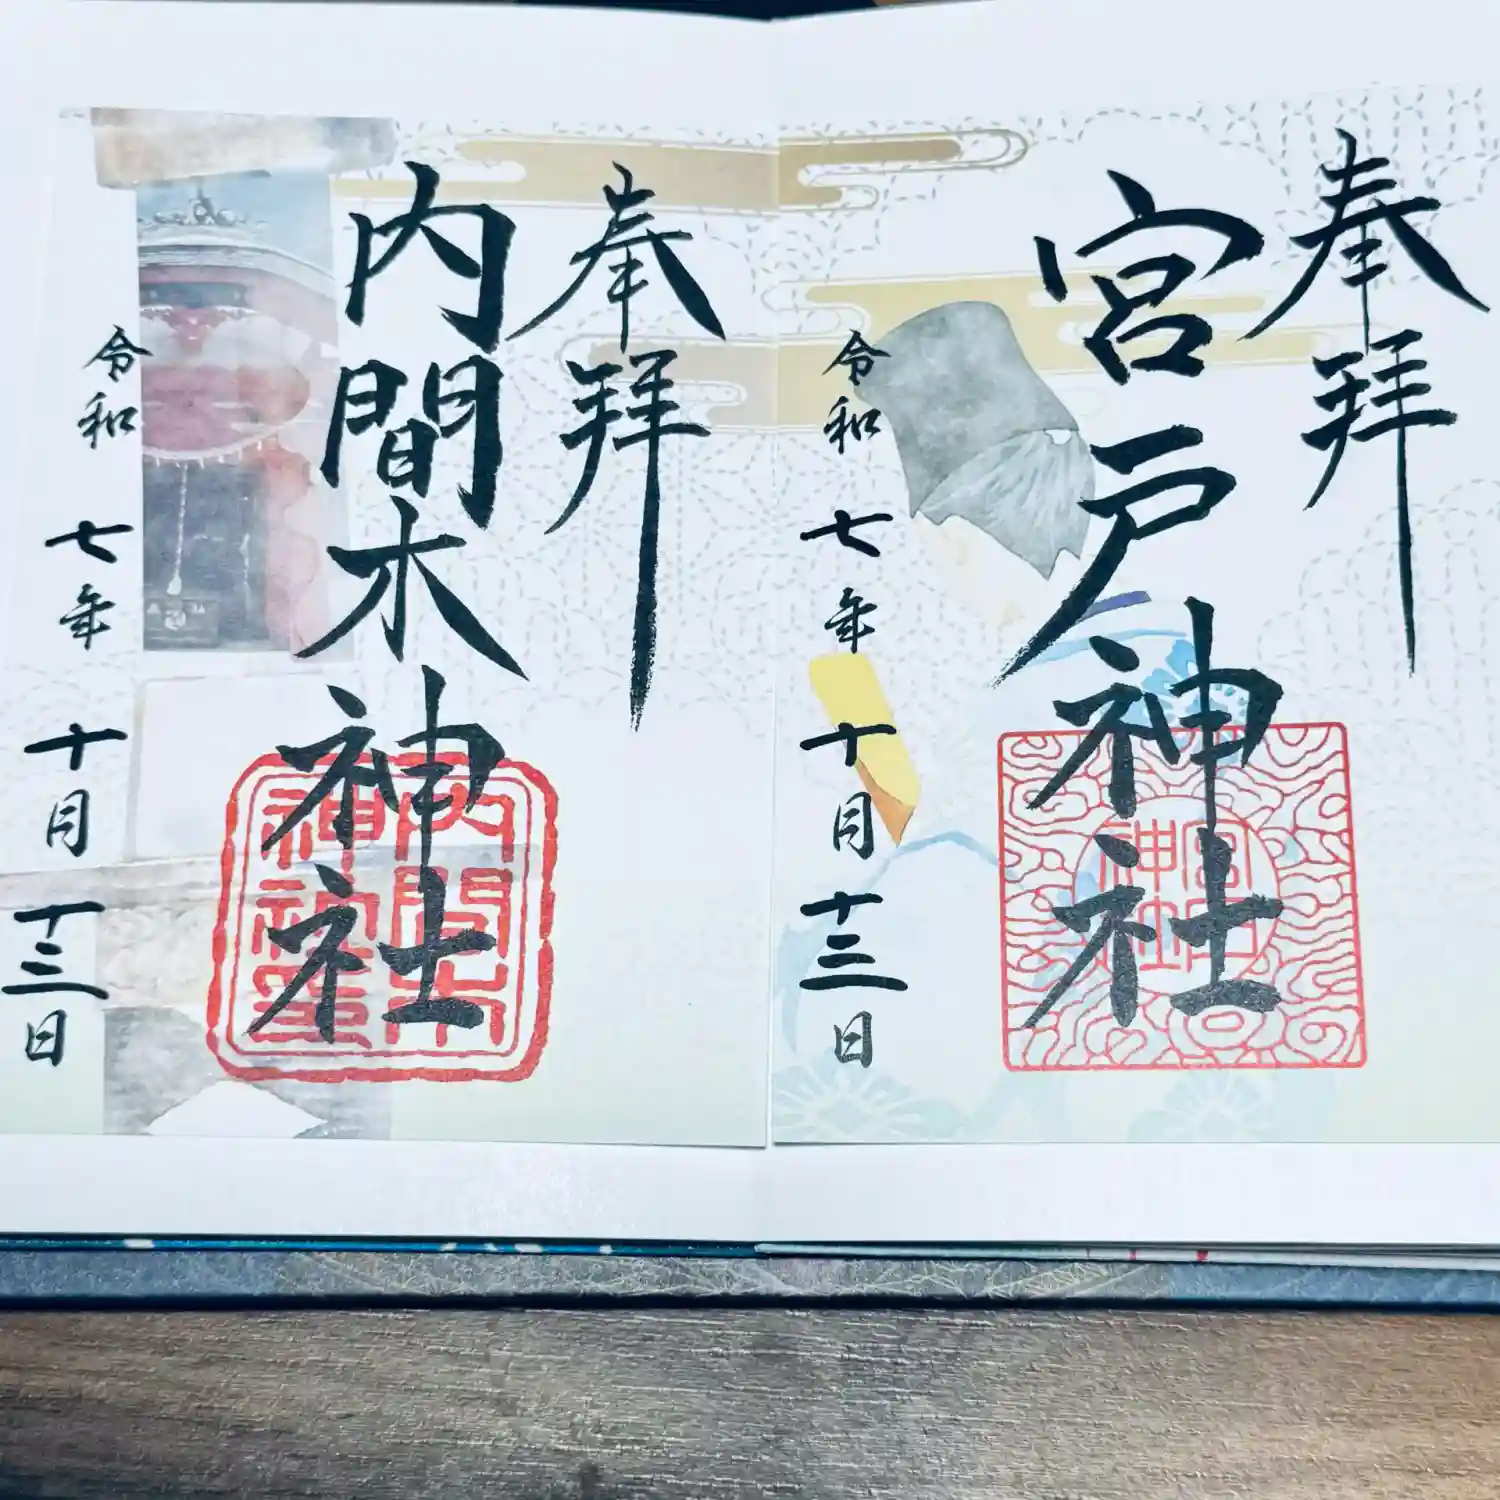 奉拝
宮戸神社
宮戸神社
令和七年十月十三日
奉拝
内間木神社
内間木神社璽
令和七年十月十三日